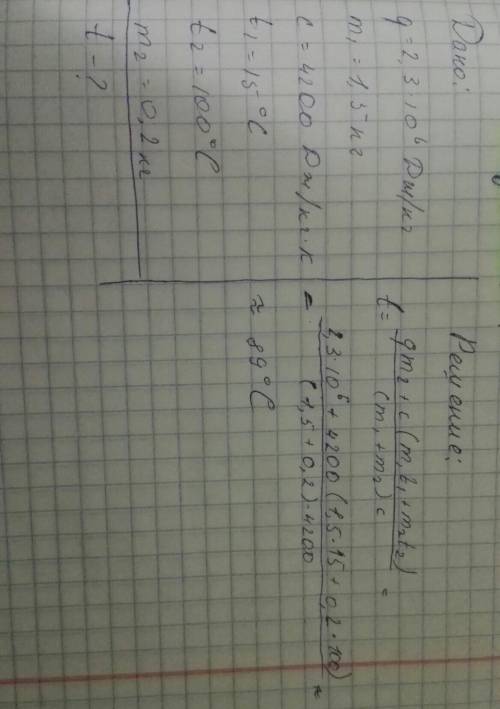 Дано:
q = 2,3·10⁶ Дж/кг
m₁ = 1,5 кг
c = 4200 Дж/кг·К
t₁ = 15°C
t₂ = 100°C
m₂ = 0,2 кг
t - ?
Решение:
t = qm₂ + c(m₁t₁ + m₂t₂) / (m₁ + m₂)c =
= 2,3·10⁶ + 4200(1,5·15 + 0,2·100) / (1,5 + 0,2)·4200 ≈
≈ 89°C